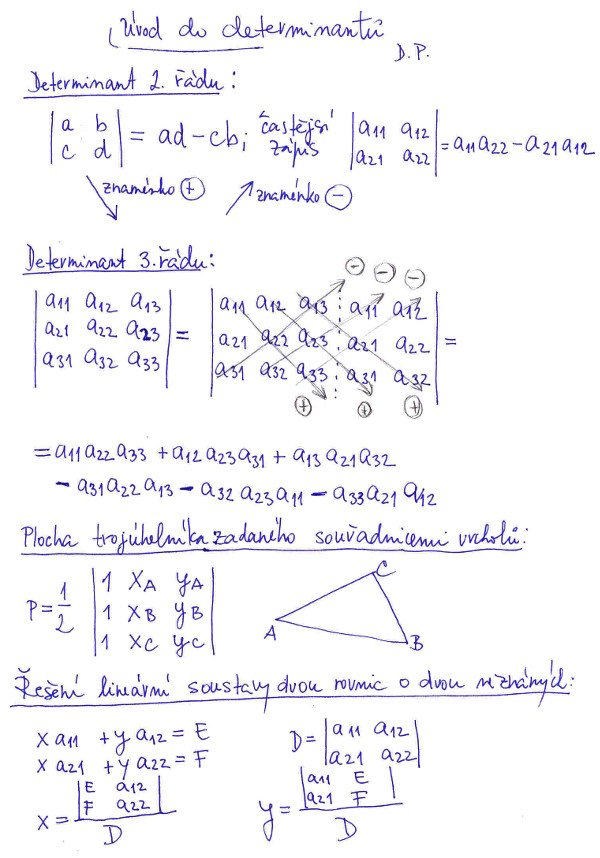 Úvod do determinantů
D.P.
Determinant 2. řádu:
|a b| = ad - cb; častější |a11 a12| = a11a22 - a21a12
|c d| zápis |a21 a22|
znaménko + znaménko -
Determinant 3. řádu:
- - -
|a11 a12 a13| = |a11 a12 a13 ⋮ a11 a12| =
|a21 a22 a23| |a21 a22 a23 ⋮ a21 a22|
|a31 a32 a33| |a31 a32 a33 ⋮ a31 a32|
+ + +
= a11a22a33 + a12a23a31 + a13a21a32
- a31a22a13 - a32a23a11 - a33a21a12
Plocha trojúhelníka zadaného souřadnicemi vrcholů:
P = 1/2 |1 xA yA|
|1 xB yB|
|1 xC yC|
C
A
B
Řešení lineární soustavy dvou rovnic o dvou neznámých:
x a11 + y a12 = E
x a21 + y a22 = F
D = |a11 a12|
|a21 a22|
x = |E a12|
|F a22|
D
y = |a11 E|
|a21 F|
D